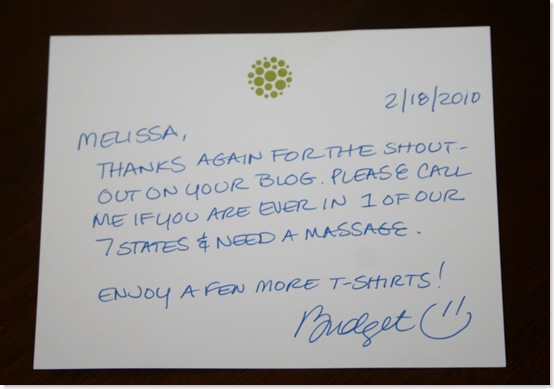 2/18/2010
MELISSA,
THANKS AGAIN FOR THE SHOUT-
OUT ON YOUR BLOG. PLEASE CALL
ME IF YOU ARE EVER IN 1 OF OUR
7 STATES & NEED A MASSAGE.
ENJOY A FEW MORE T-SHIRTS!
Bridget